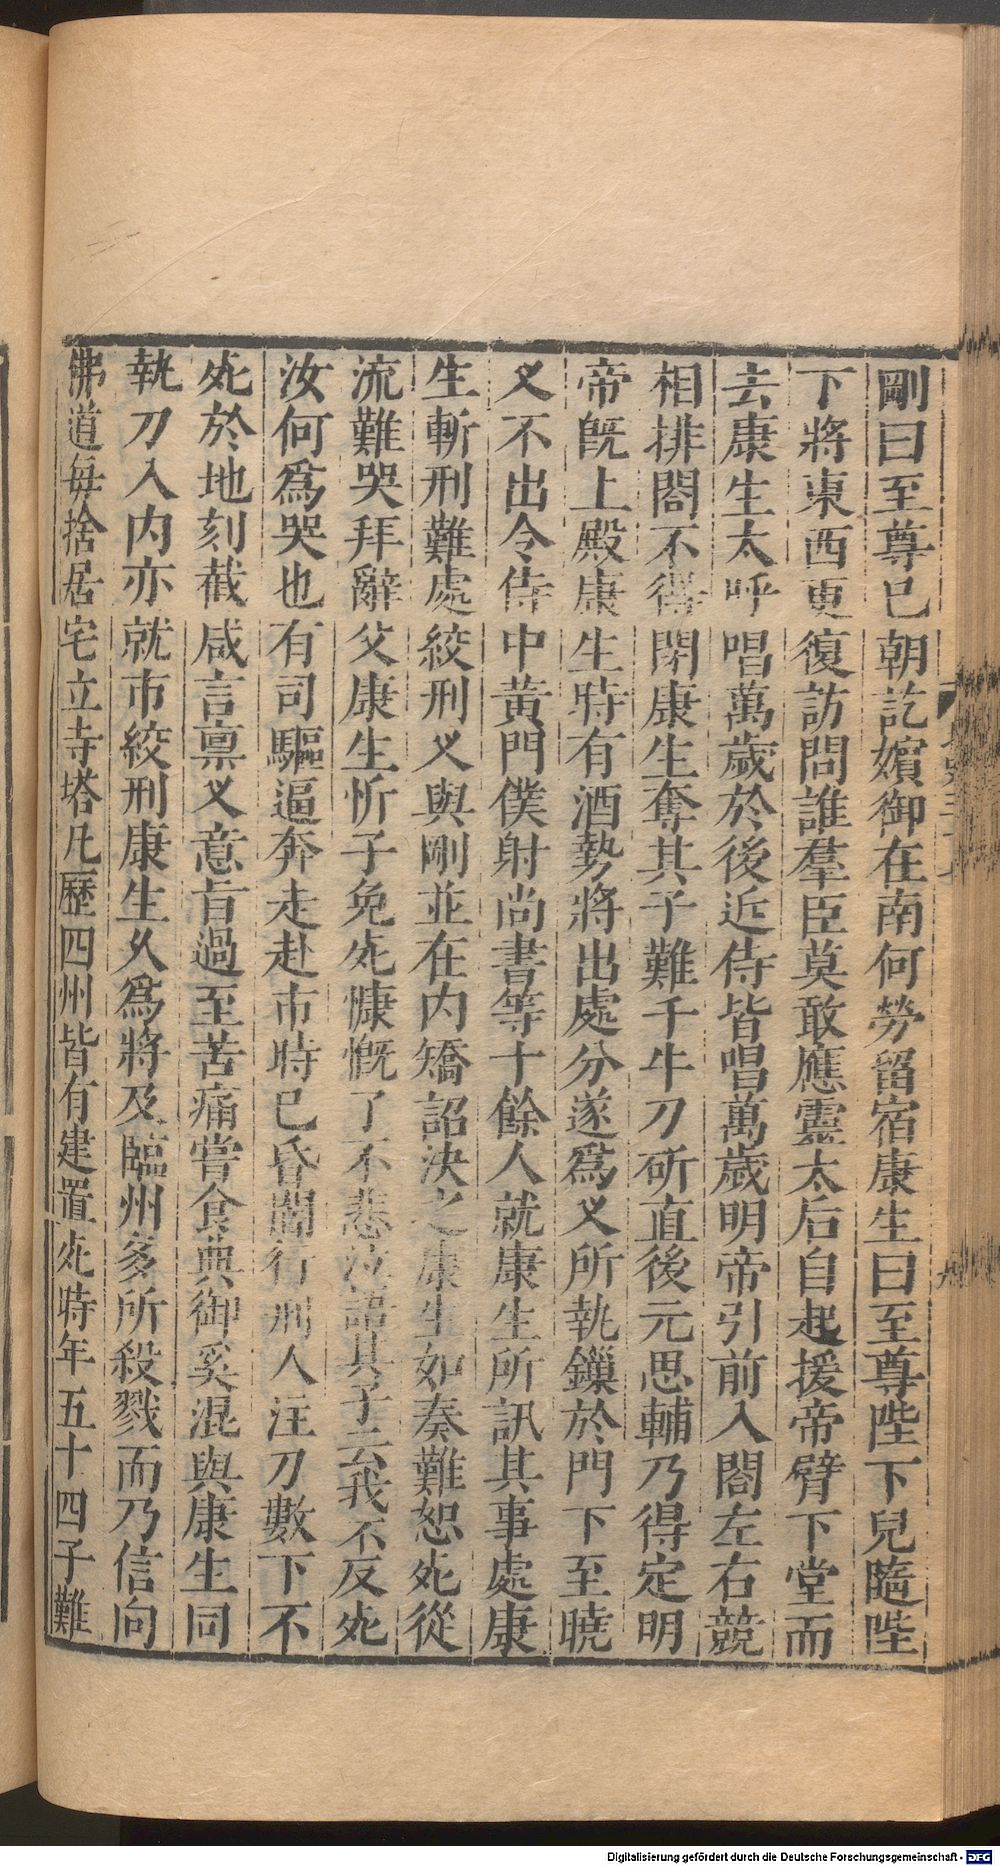 剛曰至尊已朝訖嬪御在南何勞留宿康生曰至尊陛下兒隨陛
下將東西更復訪問誰羣臣莫敢應靈太后自起援帝臂下堂而
去康生大呼唱萬歲於後近侍皆唱萬歲明帝引前入閤左右競
相排閤不得閉康生奪其子難千牛刀斫直後元思輔乃得定明
帝旣上殿康生時有酒勢將出處分遂爲乂所執鏁於門下至曉
乂不出令侍中黃門僕射尚書等十餘人就康生所訊其事處康
生斬刑難處絞刑乂與剛並在內矯詔決之康生如奏難恕死從
流難哭拜辭父康生忻子免死慷慨了不悲泣語其子云我不反死
汝何爲哭也有司驅逼奔走赴市時已昏闇行刑人注刀數下不
死於地刻截咸言稟乂意旨過至苦痛嘗食典御奚混與康生同
執刀入內亦就市絞刑康生久爲將及臨州多所殺戮而乃信向
佛道每捨居宅立寺塔凡歷四州皆有建置死時年五十四子難
Digitalisierung gefördert durch die Deutsche Forschungsgemeinschaft - DFG